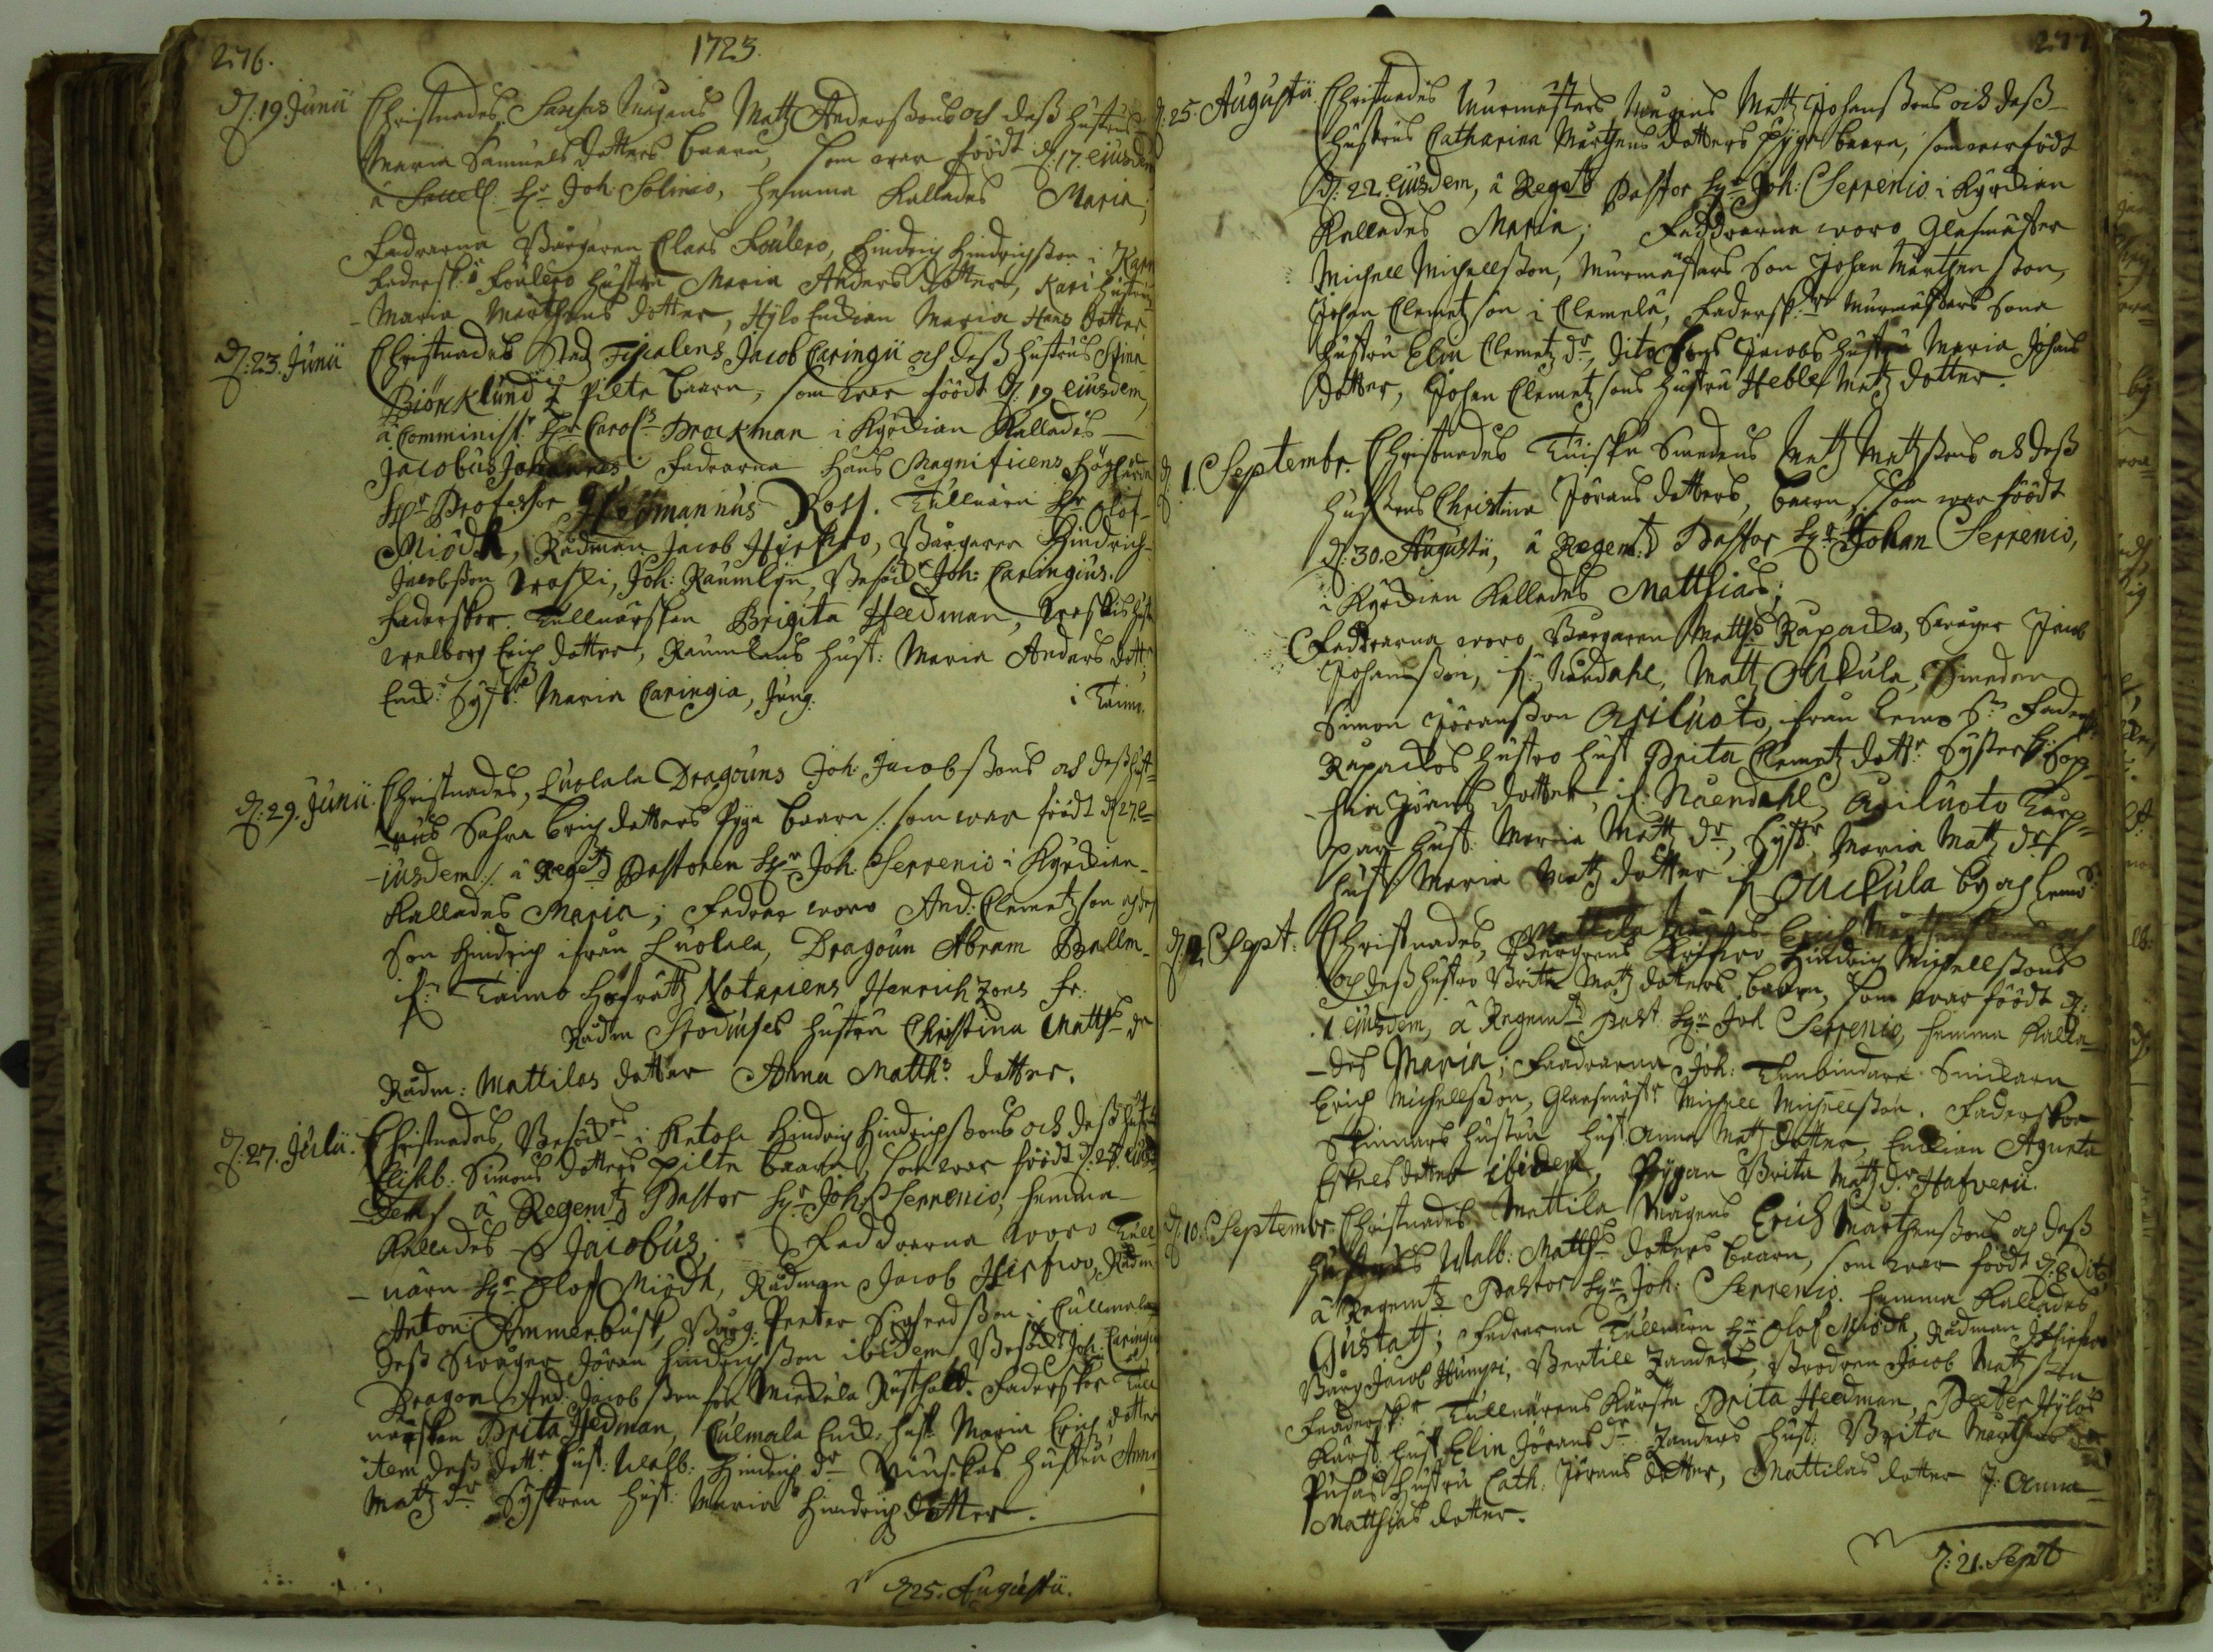 276.
1723.
d. 19. Junii Christnades Matz Anderssons och dess hustrus
Maria Samuels dotters baarn, som war föödt d. 17. ejusdem
à Sacell: Hr Joh: Solinio, hemma kallades Maria;
Fadrarna Bårgaren Claas Hindrich Hindrichsson i
Fadersk: hustru Maria Anders dotter, Kari hustru
Maria Mårthens dotter, Enckian Maria Hans dotter
d. 23. Junii Christnades Stad Fiscalens Jacob Caringii och dess hustrus Stina
Biörklund pilte baarn, som war föödt d. 19 ejusdem,
à Comminist: Hr Carol: Brockman i Kyrckian kallades
Jacobus Johannes Fadrarna Hans Magnificens Höglärde
Hr Professor Hermannus Ross. Tullnärn Hr Olof
Miödh, Rådman Jacob Hirfwo, Bårgaren Hindrich
Jacobsson Krook, Joh: Raumlin, Besöck: Joh: Caringius.
Faderskor. Tullnärskan Brigita Heedman,
Walborg Erich dotter, Raumlins hust: Maria Anders dott:
Enck: Syst: Maria Caringia, Jung. i Taimo.
d. 29. Junii. Christnades, Luolala Dragouns Joh: Jacobssons och dess hust-
rus Sahra Erich dotters Pyga baarn /: som war föödt d. 27. e-
jusdem :/ à Regemtz Pastoren Hr Joh: Serrenio i Kyrckian
kallades Maria; Fadrar woro And: Clemetzson och dess
Son Hindrich ifrån Luolala, Dragoun Abram
fr. Taimo Håfrättz Notariens Henrich Zons fr.
Rådm Stodiuses hustru Christina Matths dr
Rådm: Mattilas dotter Anna Matths dotter.
d. 27. Julii. Christnades, Besöck: i Ketola Hindrich Hindrichssons och dess hustrus
Elisab: Simons dotters pilte baarn, som war föödt d. 25 ejus-
dem à Regemtz Pastor Hr Joh: Serrenio, hemma
kallades Jacobus; Faddrarna woro Tull-
närn Hr Olof Miödh, Rådman Jacob Hirfwo, Rådm
Anton: Ammerbusk, Bårg: Peeter Sigfredsson i Cullmala
dess Swåger Jöran Hindrichsson ibidem, Besöck: Joh: Caringius
Dragon And: Jacobsson från Miekula Rusthald. Faderskor Tull
närskan Brita Hedman, Culmala Enck: hust: Maria Erich dotter
item dess dott: hust: Walb: Hindrich dr hustru Anna
Matz dr Systren hust: Maria Hindrich dotter.
d. 25. Augustii.
277
d. 25. Augustii Christnades Murmästers Mågens Matz Johanssons och dess
hustrus Catharina Mårthens dotters Pyga baarn, som war födt
d. 22. ejusdem, à Regetz Pastor Hr Joh: Serrenio i Kyrckian
kallades Maria; Faddrarna woro Glasmäster
Michell Michellsson, Murmästars Son Johan Mårthensson,
Johan Clemetzson i Clemela, Fadersk:r Murmästars Sons
hustru Elin Clemetz dr, dito Jacobs hustru Maria Johans
dotter, Johan Clemetzsons hustru Heble Matz dotter.
d. 1. Septembr. Christnades Tuiskn Smedens Matz Matzssons och dess
hustrus Christina Jörans dotters, baarn, som war föödt
d. 30. Augustii, à Regem:tz Pastor Hr Johan Serrenio,
i Kyrckian kallades Matthias;
Faddrarna woro Bårgaren Matths Rapacko, Swåger Jacob
Johansson, fr: Nåendahl, Matz Ouckula, Smeden
Simon Jöransson Asiluoto, ifrån Lemo Sn Fadersk:
Rapackos hustro hust Brita Clemetz dott: Syster h: Sop-
hia Jörans dotter, fr: Nåendahl, Asiluoto Torp-
par hust: Maria Matz dr, Syst: Maria Matz dr
hust: Maria Matz dotter fr Ouckula by och Lemo S:
d. 2 Sept: Christnades, Mattila Mågens Erich Mårthenssons och
Bårgrens Hirfwo Hindrich Michellssons
och dess hustro Brita Matz dotters baarn, som war föödt d:
1 ejusdem, à Regemtz Past: Hr Joh Serrenio, hemma kalla-
des Maria; Faadrarna Joh: Tunbindare
Erich Michellsson, Glaasmäst: Michell Michellsson. Faderskor
Skinnars hustru hust Anna Matz dotter, Enckian Agneta
Eskels dotter ibidem, Pygan Brita Matz dr Hafveru.
d. 10. Septembr Christnades Mattila Mågens Erich Mårthenssons och dess
hustrus Walb: Matths dotters baarn, som war föödt d. 8 dito
à Regemtz Pastor Hr Joh: Serrenio. hemma kallades
Gustaf; Fadrarna Tullnärn Hr Olof Miödh, Rådman J Hirfwo
Bårg Jacob Humpi, Bertill Zander, Brodren Jacob Matzsson
Faadersk:r Tullnärens Kärsta Brita Heedman, Peeter Hylös
Kärst: hust Elin Jörans dr Zanders hust: Brita Mårthens dr
Pusas hustru Cath: Jörans dotter, Mattilas dotter J: Anna
Matthias dotter.
d: 21. Sept